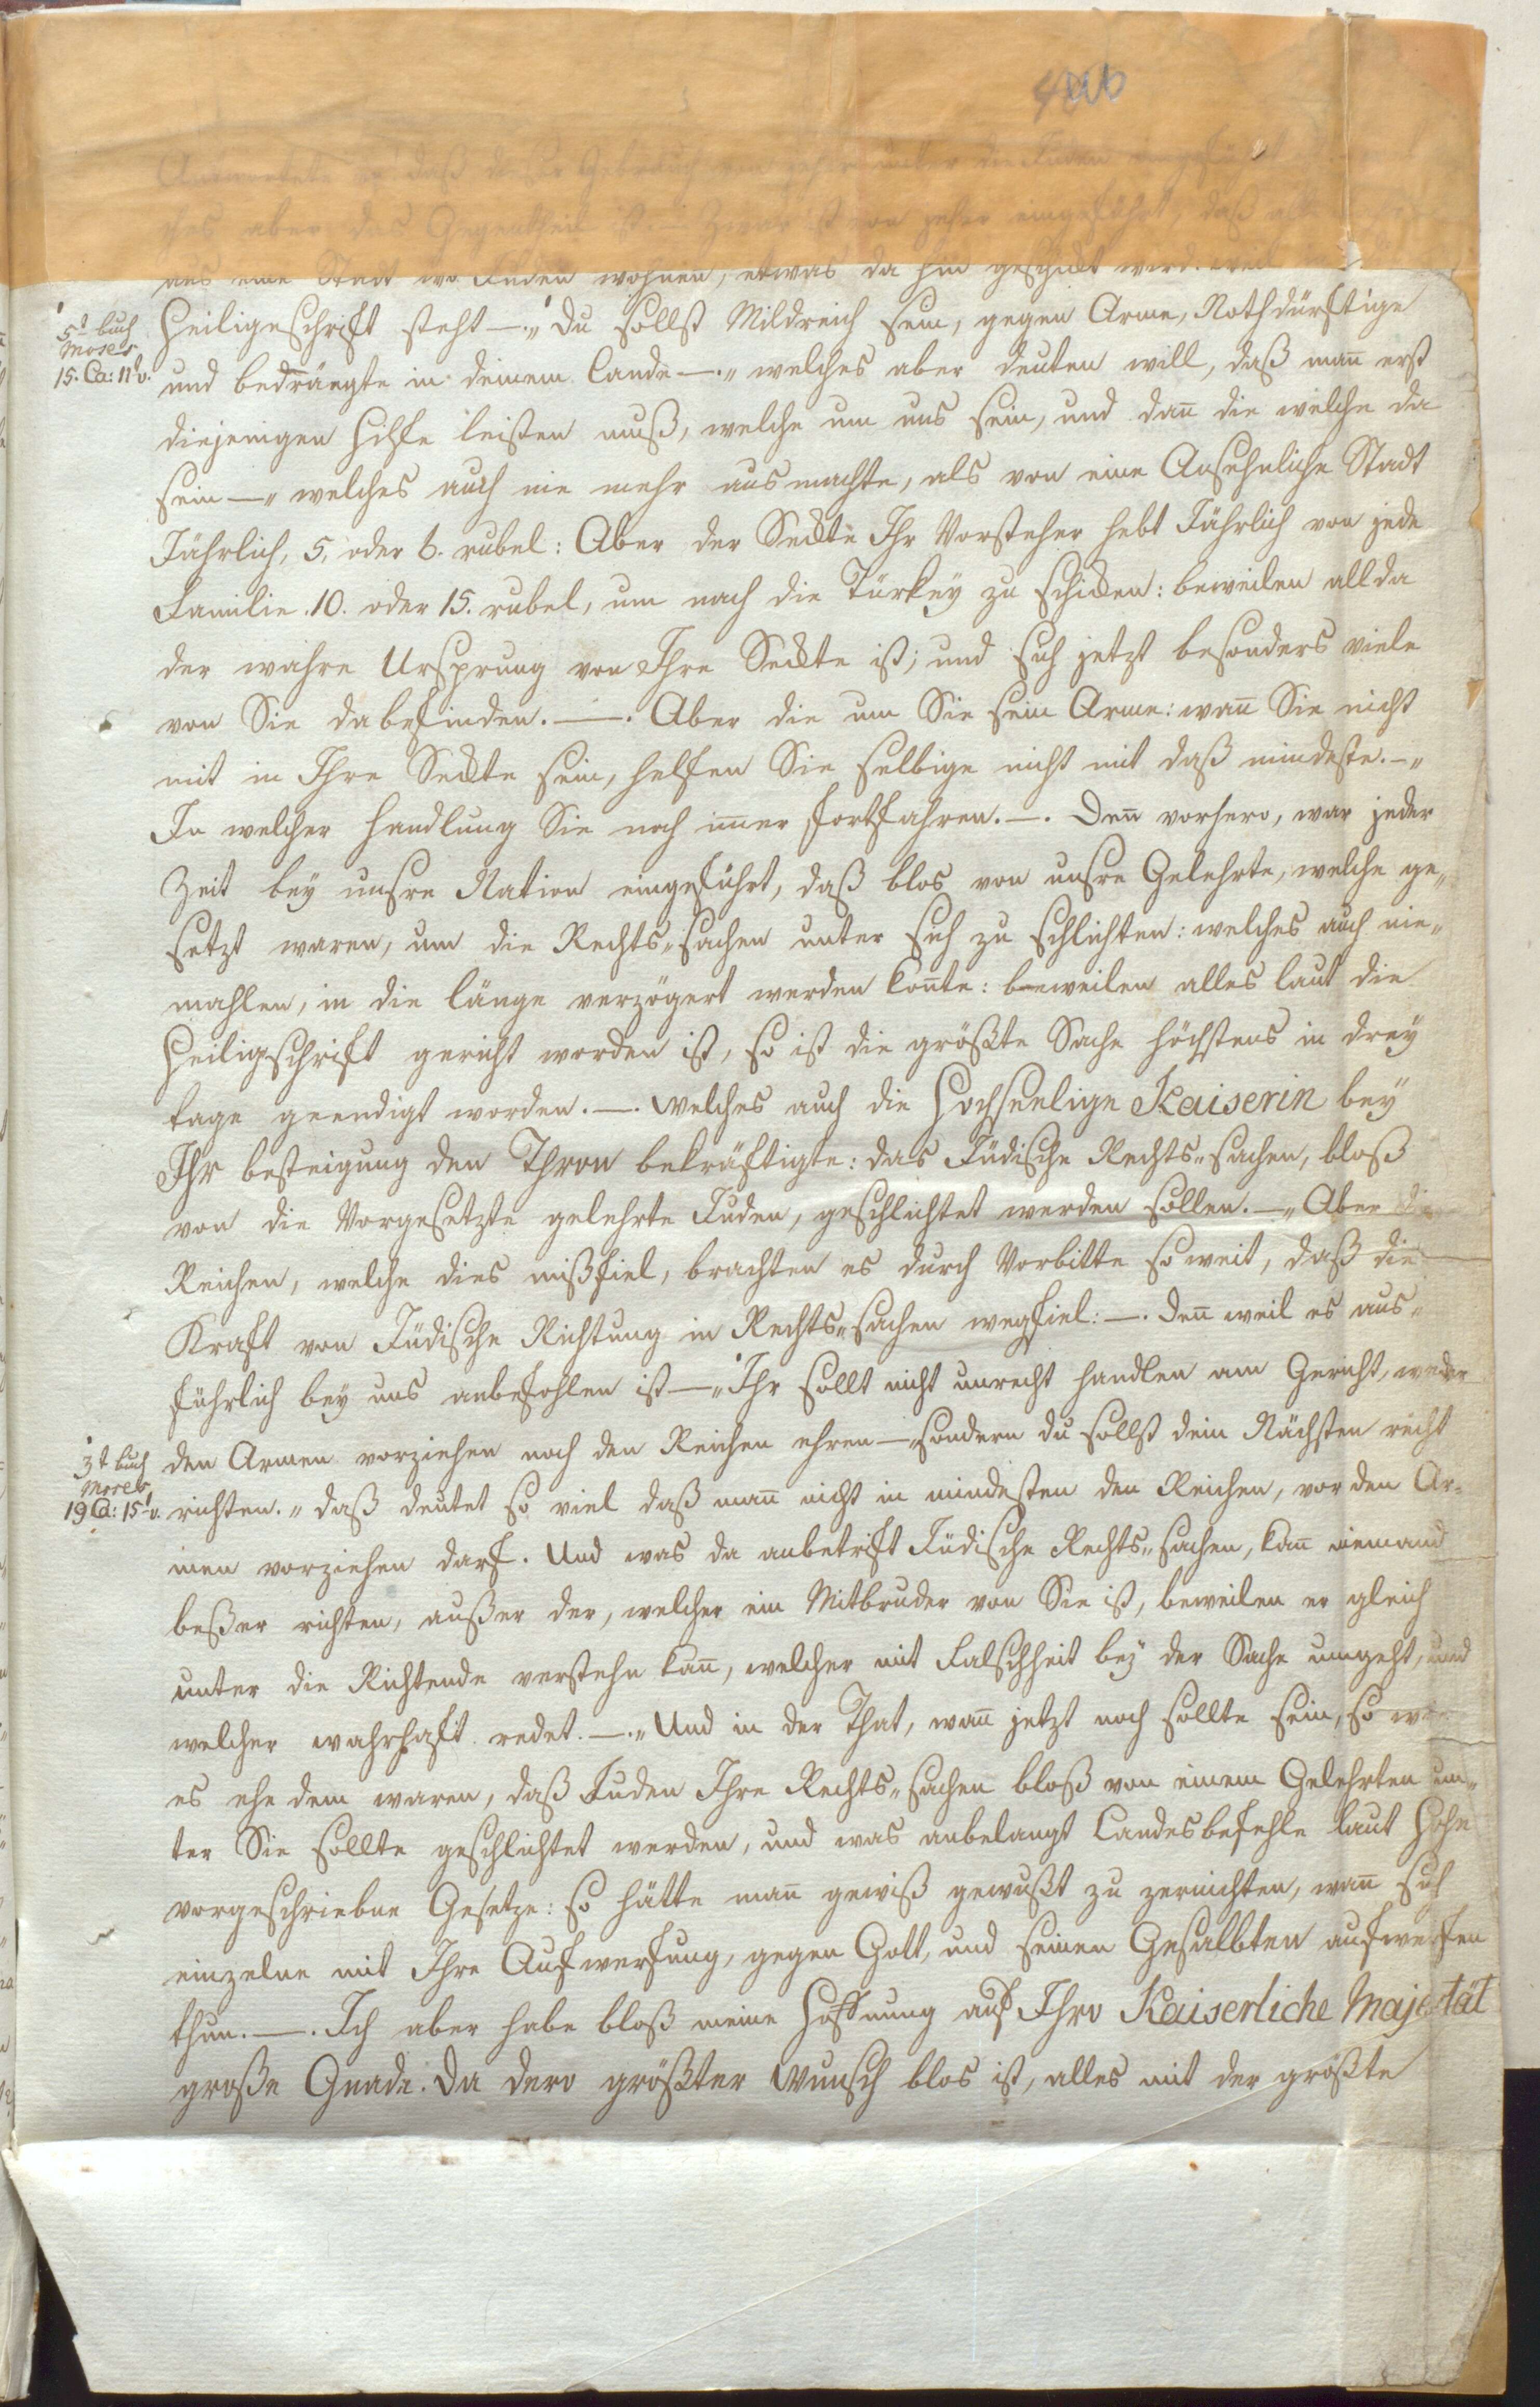 Antwortete er daß dieser Gebrauch von jeher unter die Juden eingeführt
ches aber das Gegentheil ist.— Zwar ist von jeher eingeführt, daß
aus eine Stadt wo Juden wohnen, etwas da hin geschickt wird:
Heiligeschrift steht—.„ Du sollst Mildreich sein, gegen Arme, Nothdürftige
5t buch
Moses
15. Ca: 11 v.
und bedrängte in deinem Lande—.„ welches aber deuten will, daß man̄ erst
diejenigen Hilfe leisten muß, welche um uns sein, und dan̄ die welche da
sein—„ welches auch nie mehr ausmachte, als von eine Ansehnliche Stadt
Jährlich, 5, oder 6. rubel: Aber der Seckte Ihr Vorsteher hebt Jährlich von jede
Familie 10. oder 15. rubel, um nach die Türkey zu schicken: beweilen allda
der wahre Ursprung von Ihre Seckte ist; und sich jetzt besonders viele
von Sie da befinden.—. Aber die um Sie sein Arme: wan̄ Sie nicht
mit in Ihre Seckte sein, helfen Sie selbige nicht mit daß mindeste.—„
In welcher Handlung Sie noch im̄er fortfahren.—. Den̄ vorhero, war jeder
Zeit bey unsre Nation eingeführt, daß blos von unsre Gelehrte, welche ge„
setzt waren, um die Rechts„sachen unter sich zu schlichten: welches auch nie„
mahlen, in die länge verzögert werden kon̄te: beweilen alles laut die
Heiligschrift gericht worden ist, so ist die größte Sache höchstens in drey
tage geendigt worden.—. Welches auch die Hochseelige Kaiserin bey
Ihr besteigung den Thron bekräftigte: das Jüdische Rechts„sachen, bloß
von die Vorgesetzte gelehrte Juden, geschlichtet werden sollen.—„ Aber die
Reichen, welche dies mißfiel, brachten es durch Vorbitte so weit, daß die
Kraft von Jüdische Richtung in Rechts„sachen wegfiel:—. den̄ weil es aus„
führlich bey uns anbefohlen ist—„ Ihr sollt nicht unrecht handlen am Gericht, weder
3t buch
Moses
19 Ca: 15 v.
den Armen vorziehen noch den Reichen ehren—„ sondern du sollst dein Nächsten recht
richten.„ daß deutet so viel daß man̄ nicht in mindesten den Reichen, vor den Ar„
men vorziehen darf. Und was da anbetrift Jüdische Rechts„sachen, kan̄ niemand
beßer richten, außer der, welcher ein Mitbruder von Sie ist, beweilen er gleich
unter die Richtende verstehn kan̄, welcher mit Falschheit bey der Sache umgeht, und
welcher wahrhaft redet.—.„ Und in der That, wan̄ jetzt noch sollte sein, so
es ehe dem waren, daß Juden Ihre Rechts„sachen bloß von einem Gelehrten un„
ter Sie sollte geschlichtet werden, und was anbelangt Landesbefehle laut Hohe
vorgeschriebne Gesetze: so hätte man̄ gewiß gewußt zu zernichten, wan̄ sich
einzelne mit Ihre Aufwerfung, gegen Gott, und seinen Gesalbten aufwerfen
thun.—. Ich aber habe bloß meine Hoffnung auf Ihro Kaiserliche Majestät
große Gnade. Da dero größter Wunsch blos ist, alles mit der größte